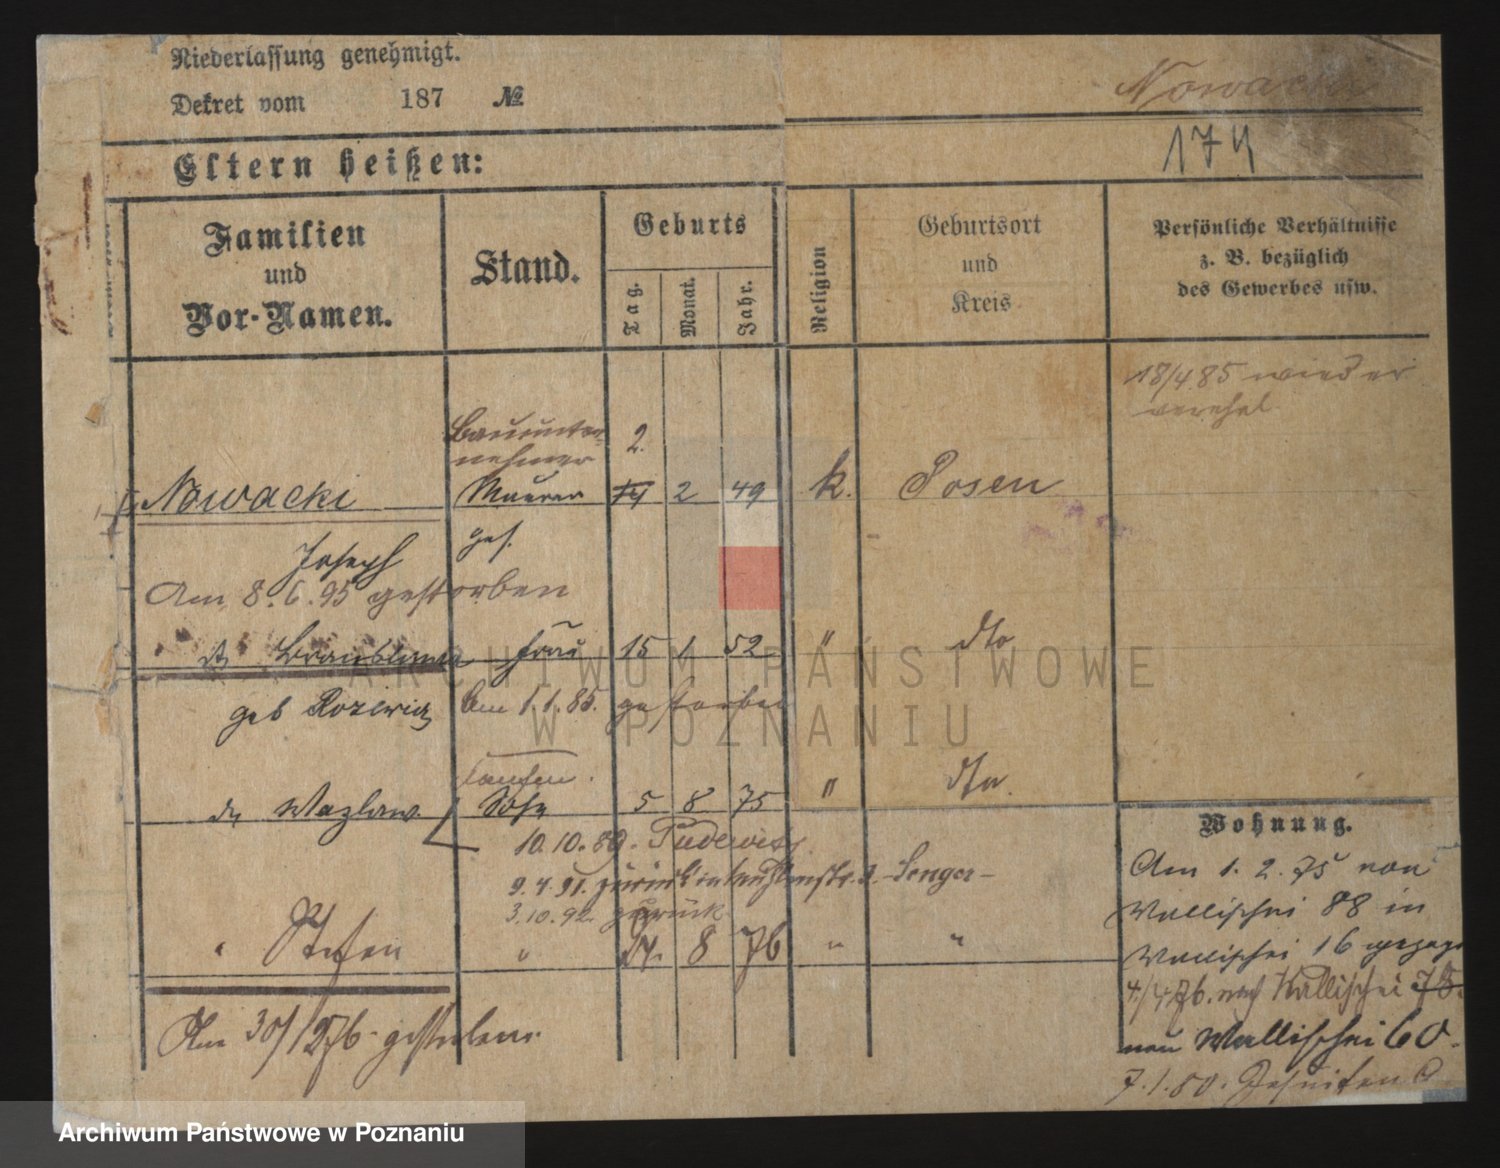 Niederlassung genehmigt.
Dekret vom 187 №
Nowacki
174
Eltern heißen:
Familien und Vor-Namen.
Stand.
Geburts
Tag.
Monat.
Jahr.
Religion
Geburtsort und Kreis
Persönliche Verhältnisse z. B. bezüglich des Gewerbes usw.
18/4.85 wieder
verehel.
Bauunter-
nehmer
2.
Nowacki Maurer 14 2 49 k. Posen
Joseph gest.
Am 8.6.95 gestorben
Frau 15 1 52 " dto
geb Am 1.1.85. gestorben
Wazlaw Sohn 5 8 75 " dto.
10.10.89. Pudewitz
9.4.91. zurück
3.10.92 zurück
Stefan " 24. 8 76 " "
Am 30/12 76 gestorben.
Wohnung.
Am 1. 2. 75 von
Wallischei 88 in
Wallischei 16 gezogen
4/4 76. nach Wallischei 75.
neu Wallischei 60.
7.1.80. Jesuiten
ARCHIWUM PAŃSTWOWE
W POZNANIU
Archiwum Państwowe w Poznaniu